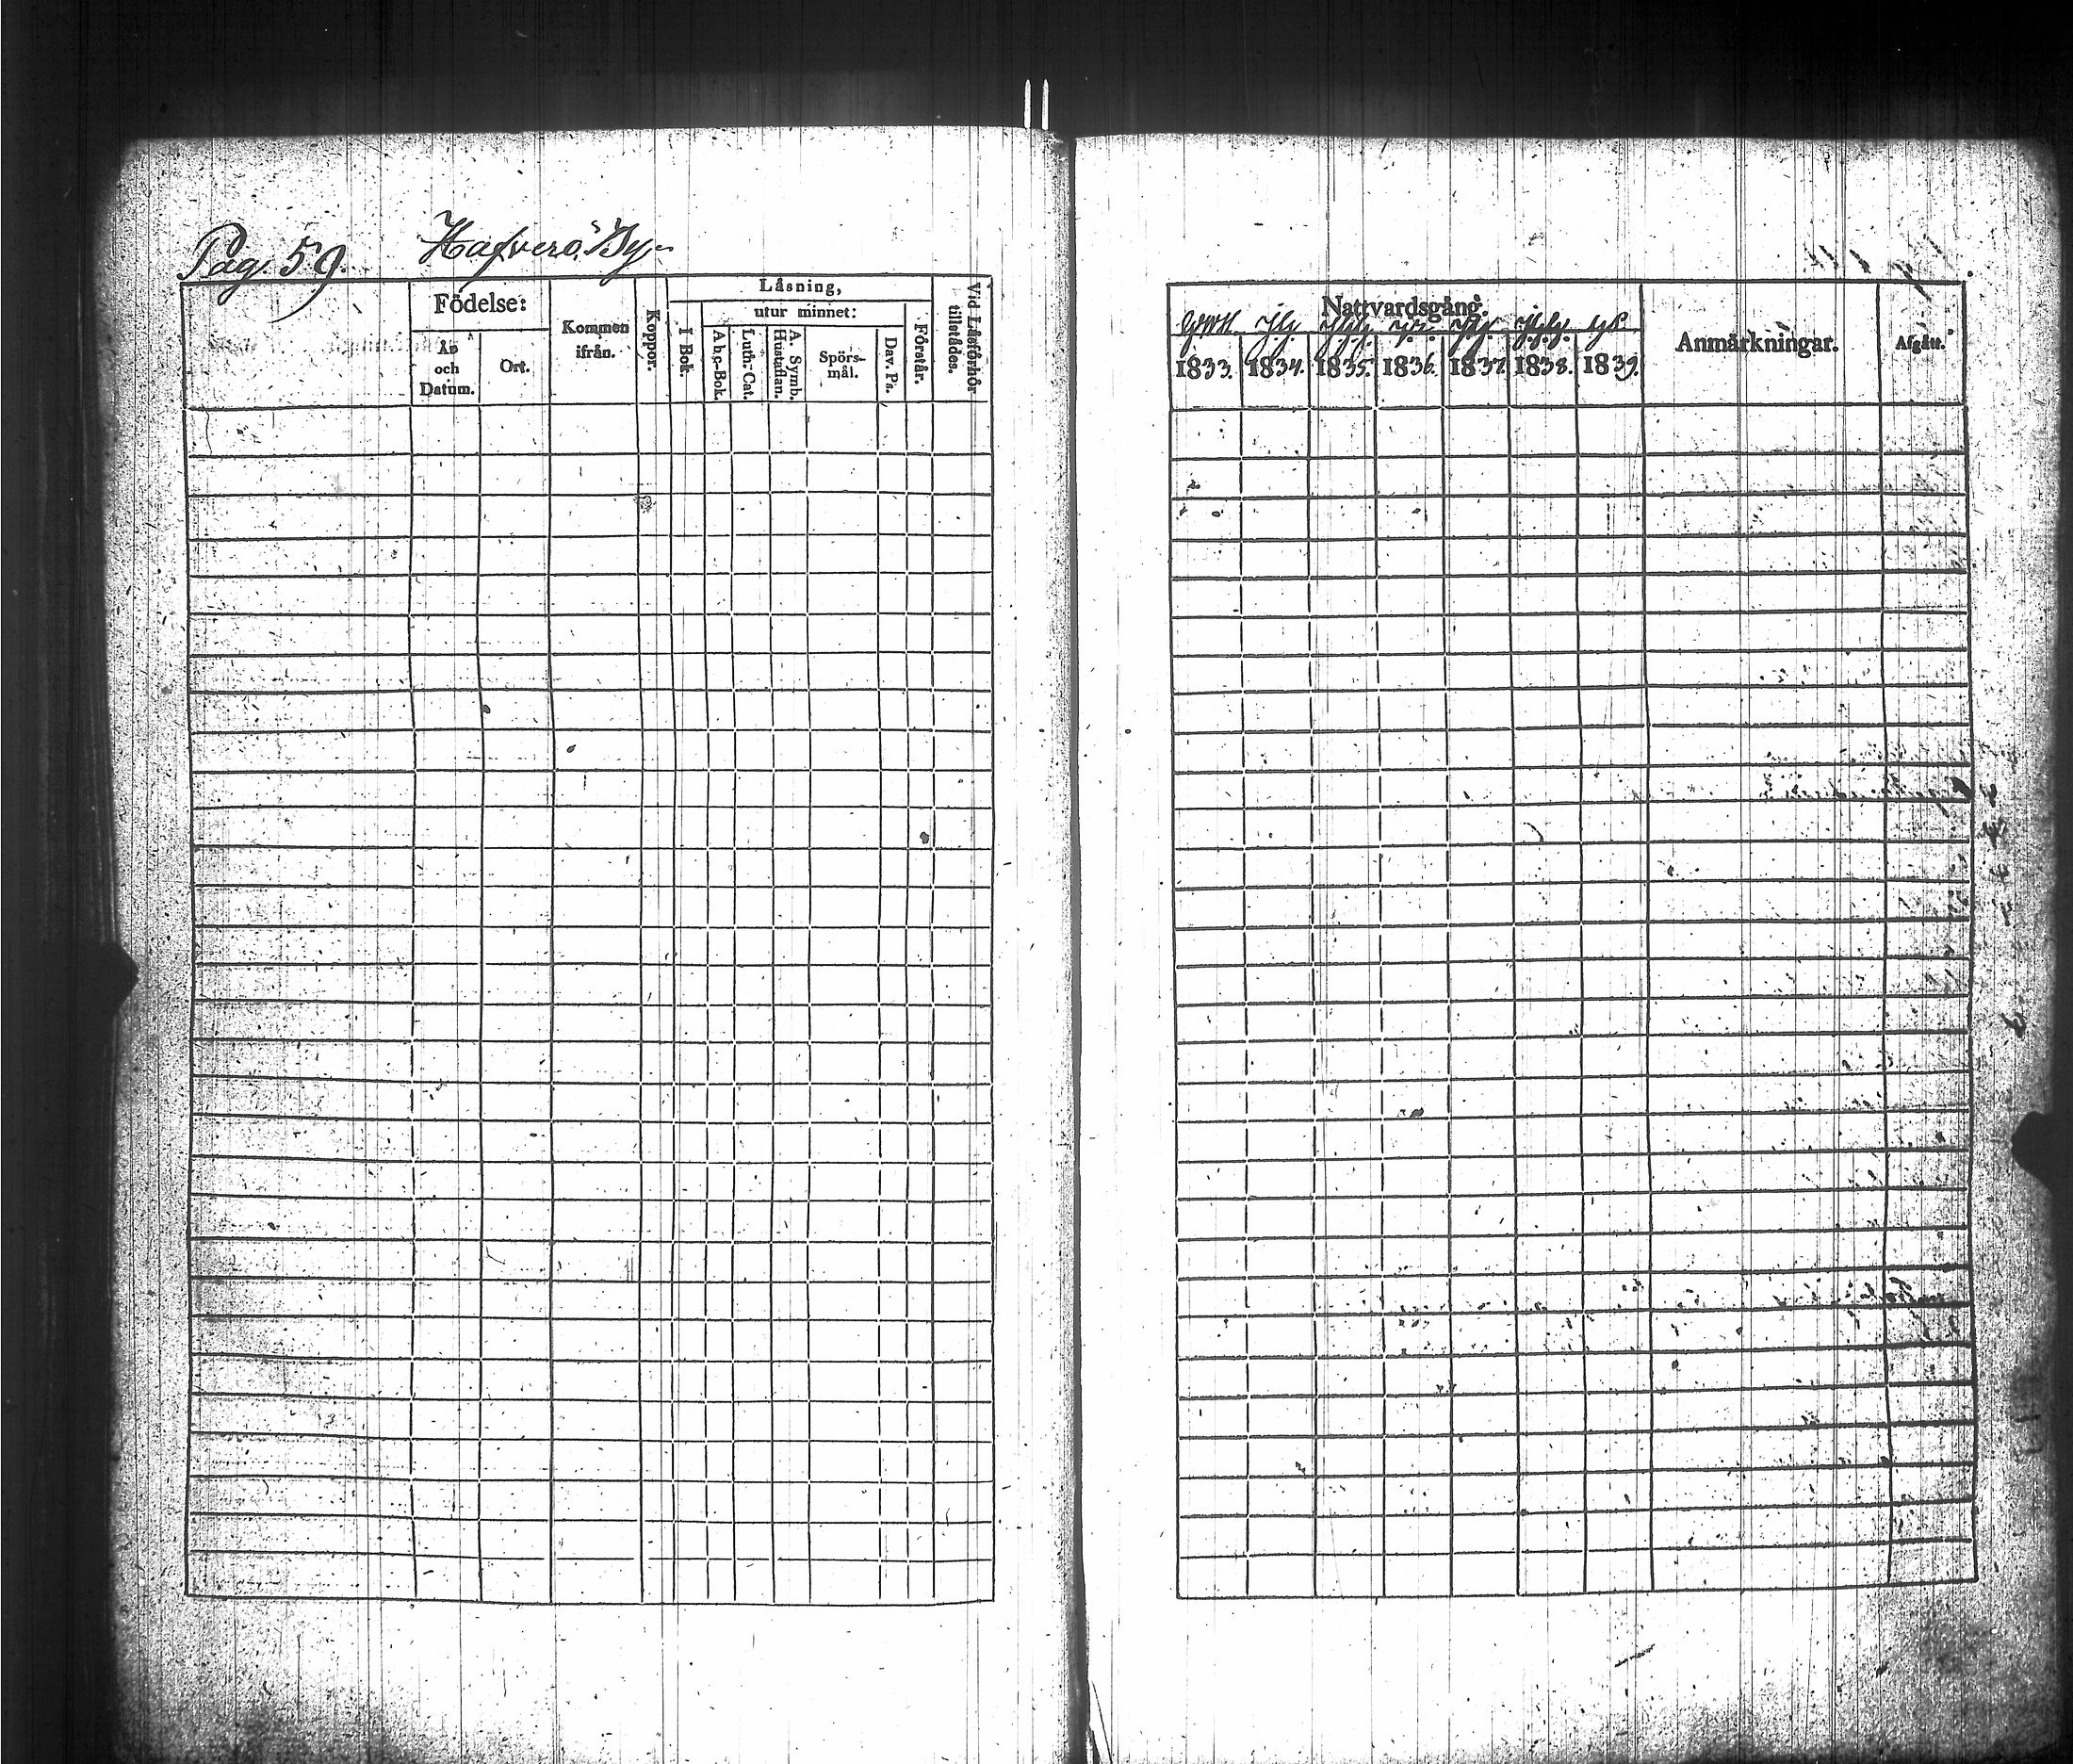 Pag. 59. Hafverö By
Födelse:
År
och
Datum.
Ort.
Kommen
ifrån.
Koppor.
Låsning,
I Bok.
utur minnet:
Abc-Bok.
Luth. Cat.
A. Symb.
Hustaflan.
Spörs-
mål.
Dav. Ps.
Förstår.
Vid Låsförhör
tillstådes.
Nattvardsgång.
1833. 1834. 1835. 1836. 1837. 1838. 1839.
Anmårkningar.
Afgått.